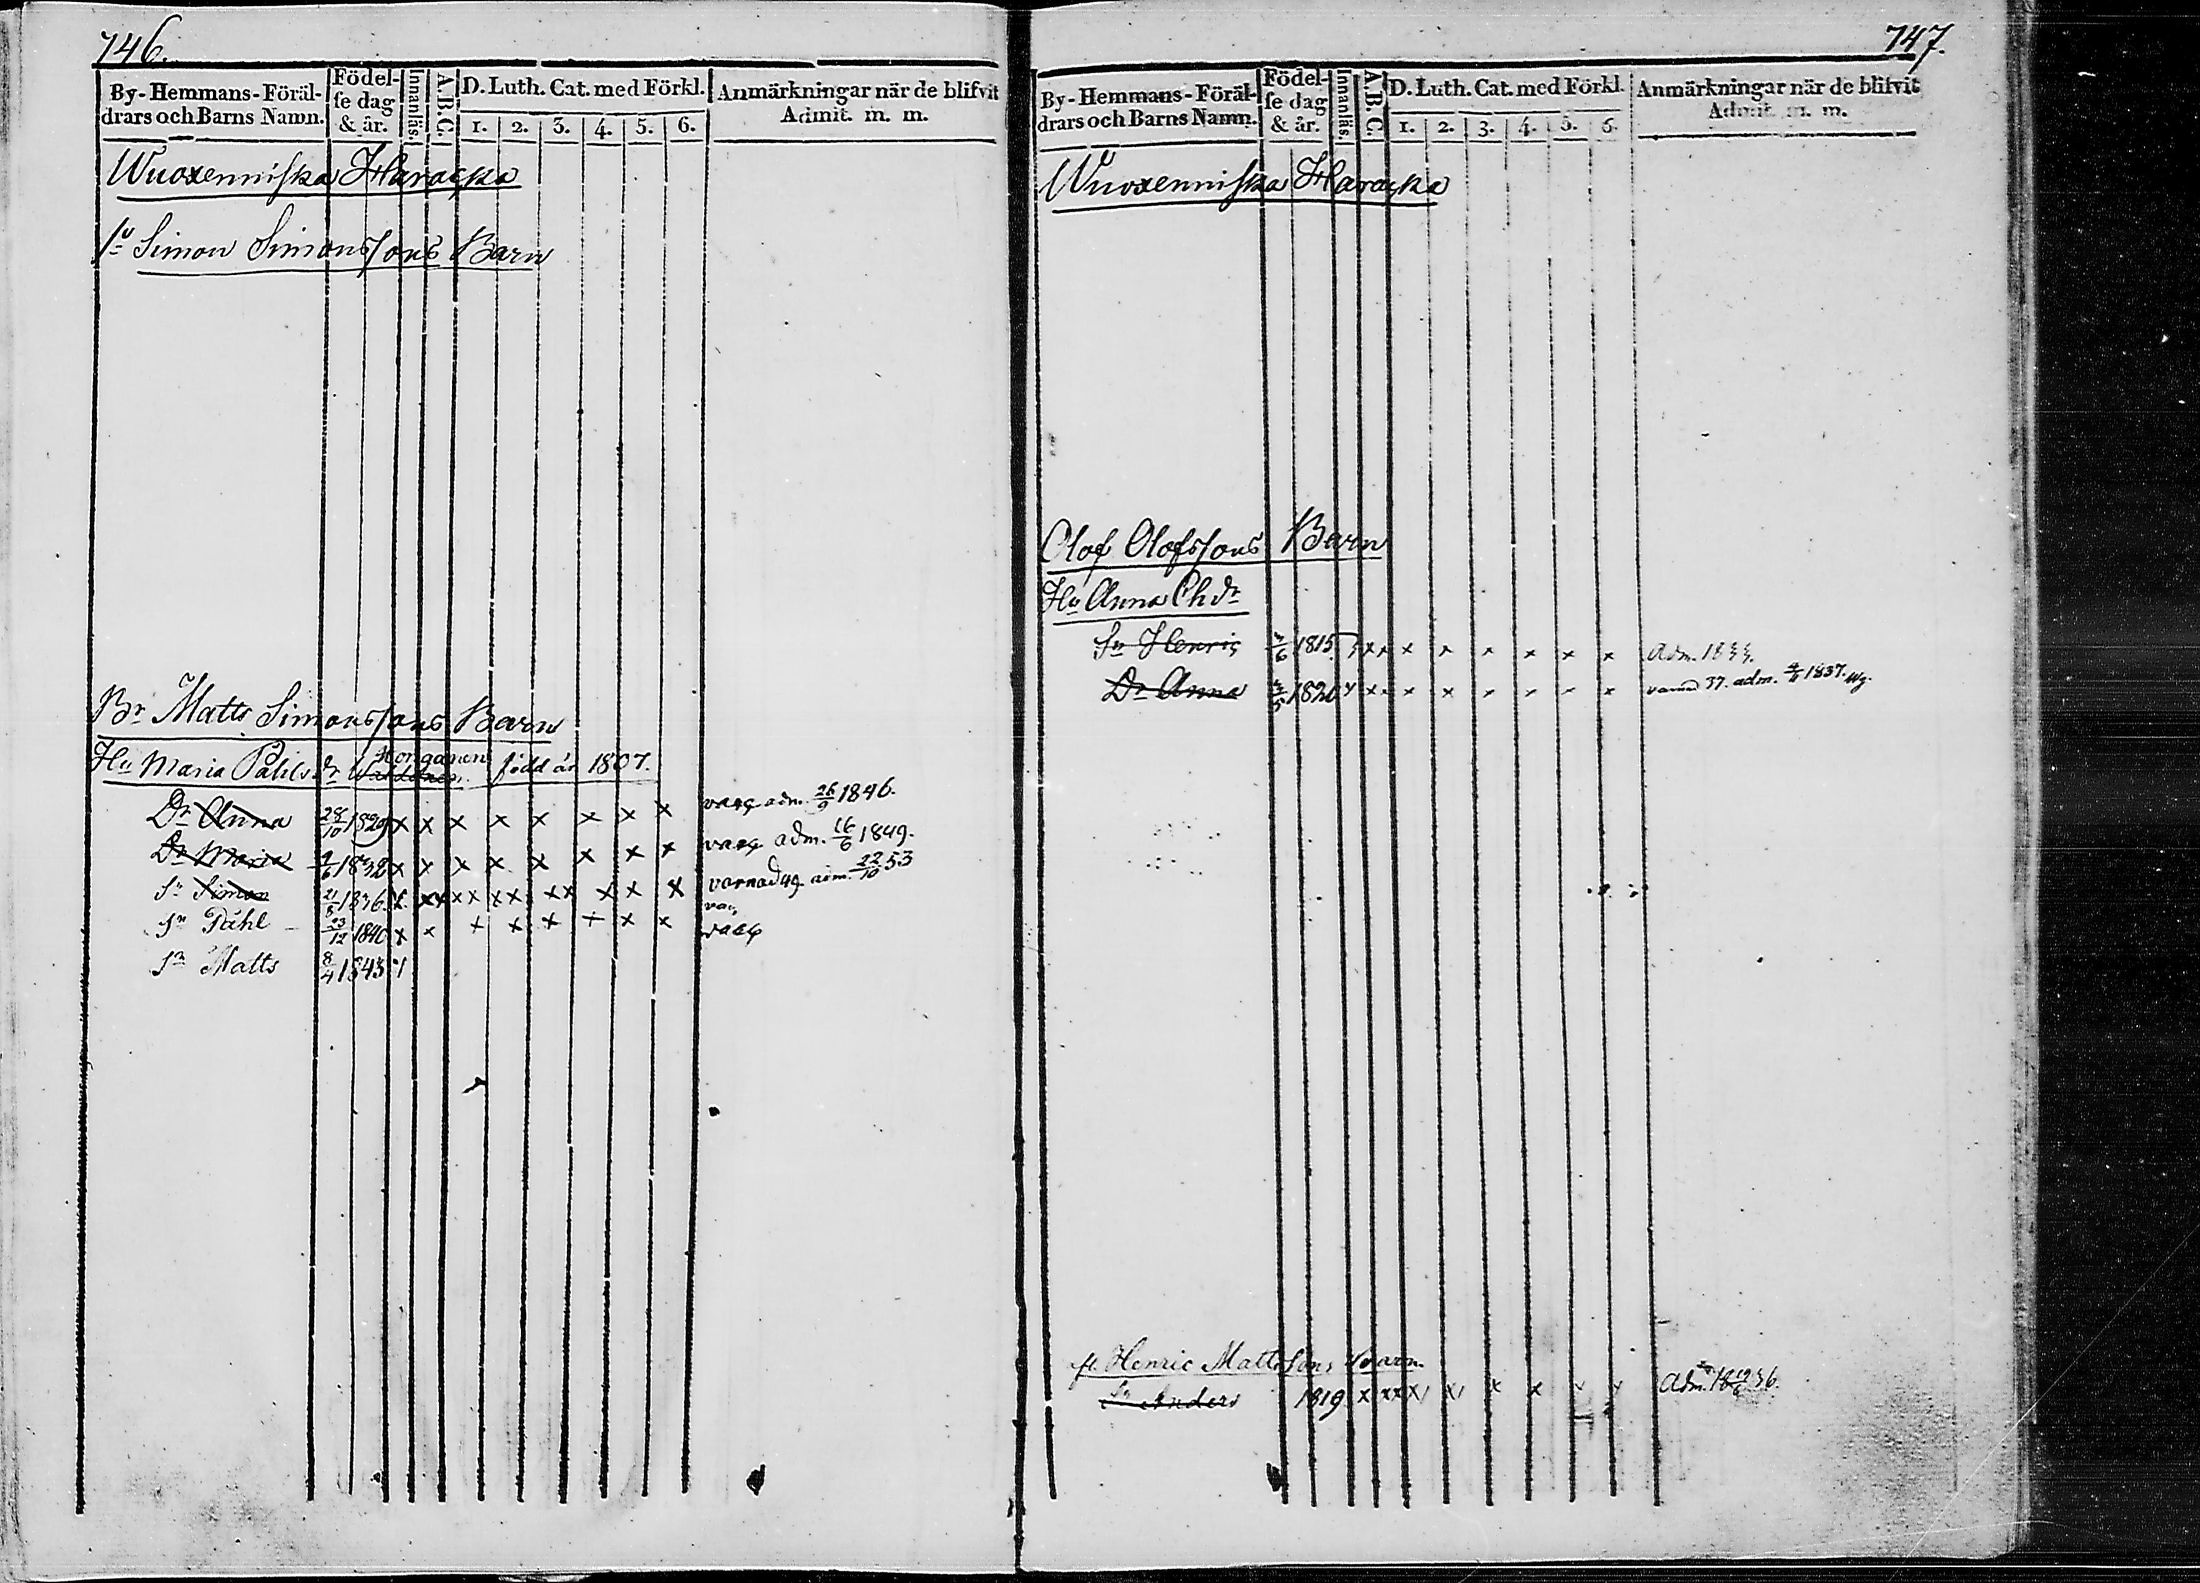 746.
By-Hemmans-Föräl-
drars och Barns Namn.
Födel-
se dag
& år.
Innanläs.
A.B.C.
D. Luth. Cat. med Förkl.
1. 2. 3. 4. 5. 6.
Anmärkningar när de blifvit
Admit. m. m.
Wuoxenniska
Sn Simon Simonssons Barn
Br Matts Simonssons Barn
Honganen
Hu Maria Påhlsdr född år 1807.
Dr Anna 28/10 1829 x x x x x x x x adm. 26/9 1846.
Dr Maria 1832 x x x x x x x x adm. 16/6 1849.
Sn Simon 21/8 1836 x xx xx xx xx x x x varnad 49 adm. 22/10 53
Sn Påhl 23/12 1840 x x x x x + x x
Sn Matts 8/4 1843
747.
By-Hemmans-Föräl-
drars och Barns Namn.
Födel-
se dag
& år.
Innanläs.
A.B.C.
D. Luth. Cat. med Förkl.
1. 2. 3. 4. 5. 6.
Anmärkningar när de blifvit
Admit. m. m.
Wuoxenniska
Olof Olofssons Barn
Hu Anna Chdr
Sn Henric 1815 x x x x x x x Adm.
Dr Anna 1820 x x x x x x x varnad 37. adm. 1837.
Henric Mattssons Barn
Sn Anders 1819 x xx x x x x x x Adm. 36.